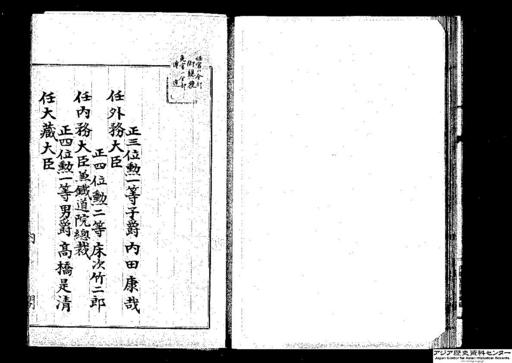 正三位勲一等子爵内田康哉
任外務大臣
正四位勲二等床次竹二郎
任内務大臣兼鐵道院總裁
正四位勲一等男爵高橋是清
任大藏大臣
内閣
アジア歴史資料センター
Japan Center for Asian Historical Records